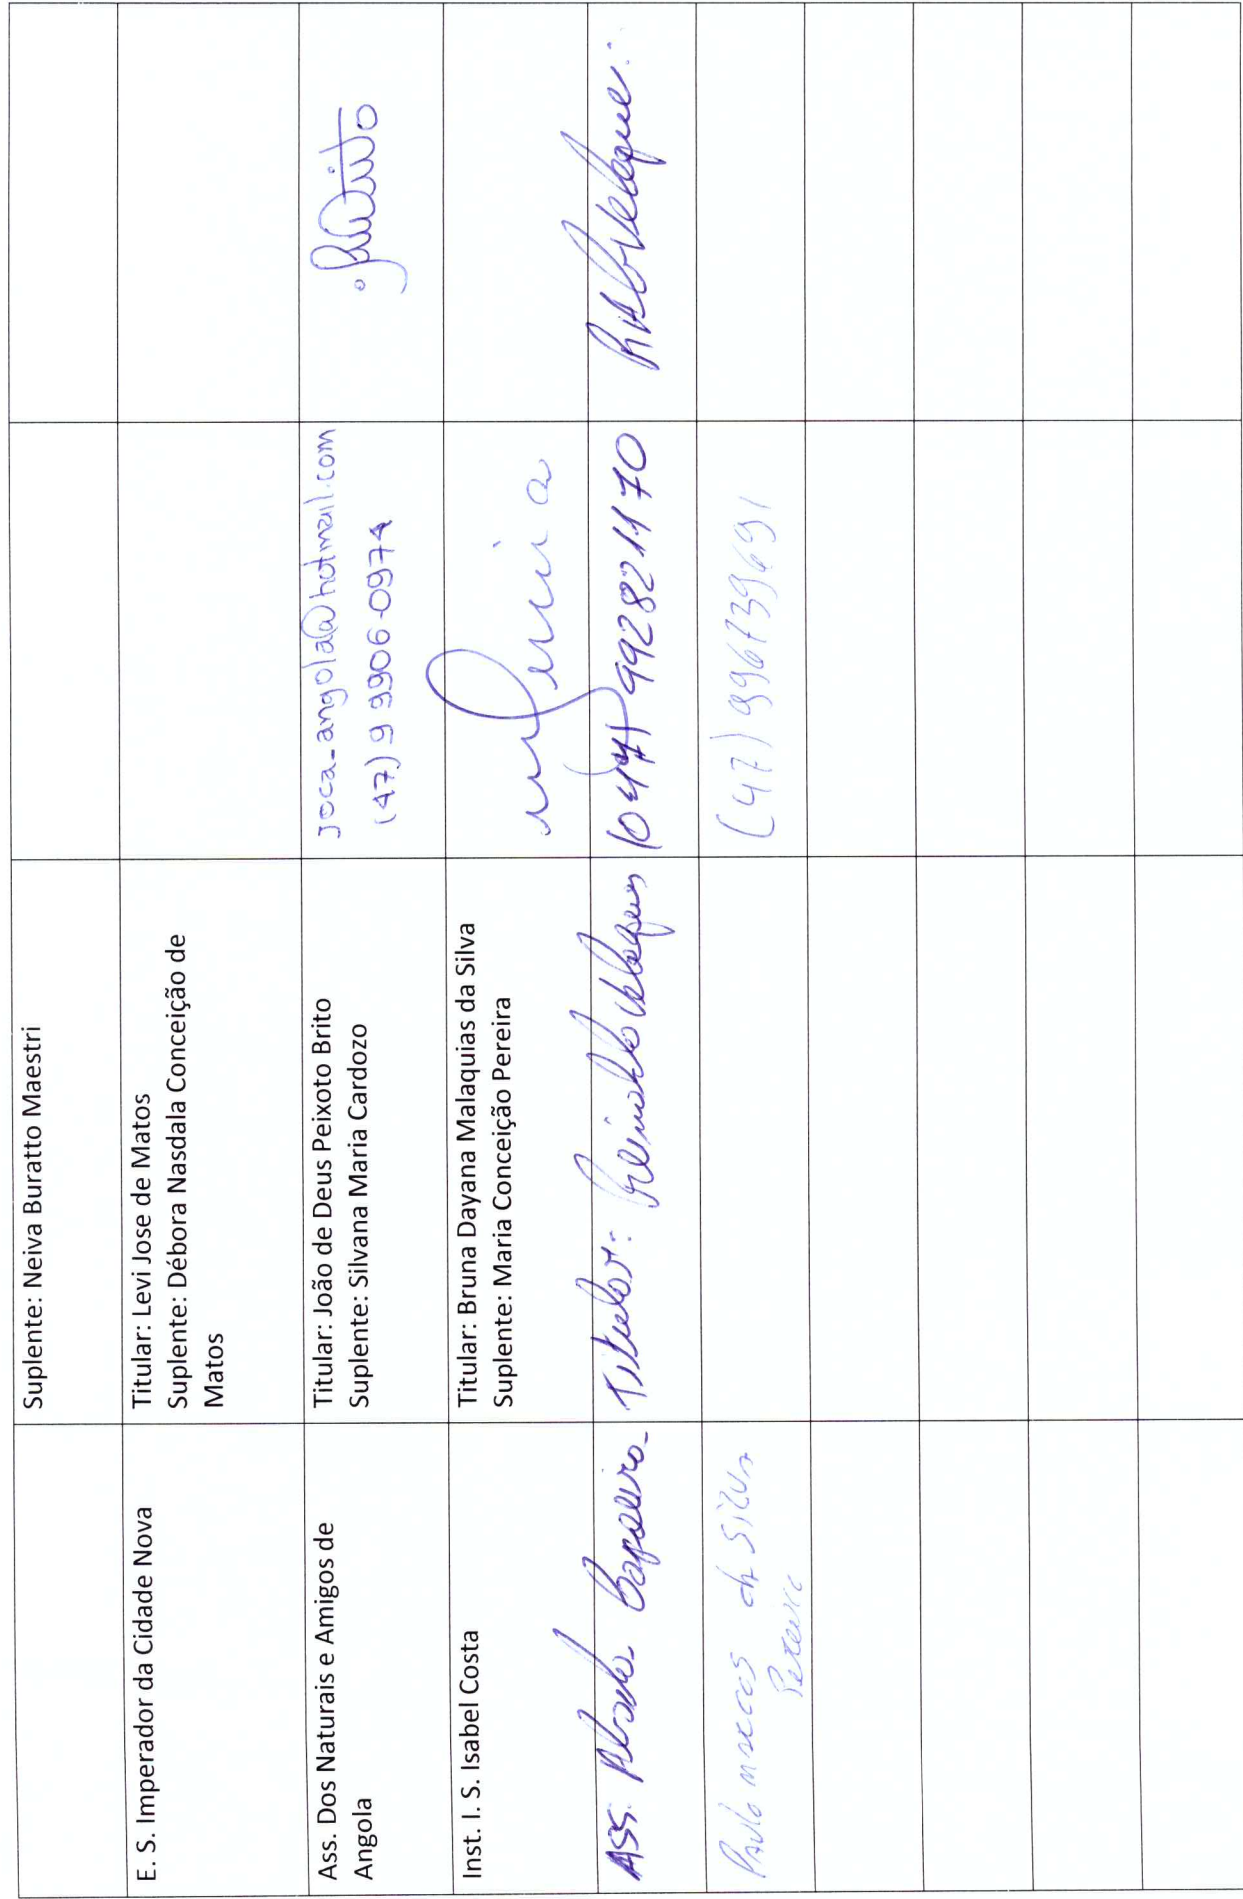 Suplente: Neiva Buratto Maestri
E. S. Imperador da Cidade Nova
Titular: Levi Jose de Matos
Suplente: Débora Nasdala Conceição de
Matos
Ass. Dos Naturais e Amigos de
Angola
Titular: João de Deus Peixoto Brito
Suplente: Silvana Maria Cardozo
joca_angola@hotmail.com
(47) 9 9906-0974
Inst. I. S. Isabel Costa
Titular: Bruna Dayana Malaquias da Silva
Suplente: Maria Conceição Pereira
Ass.
Titular:
992821170
Paulo da Silva
(47) 996739691